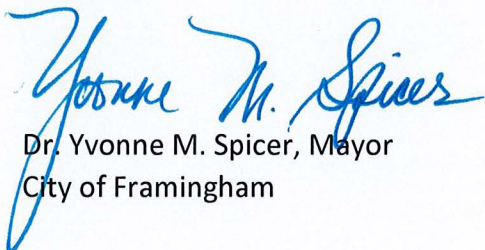 Yvonne M. Spicer
Dr. Yvonne M. Spicer, Mayor
City of Framingham